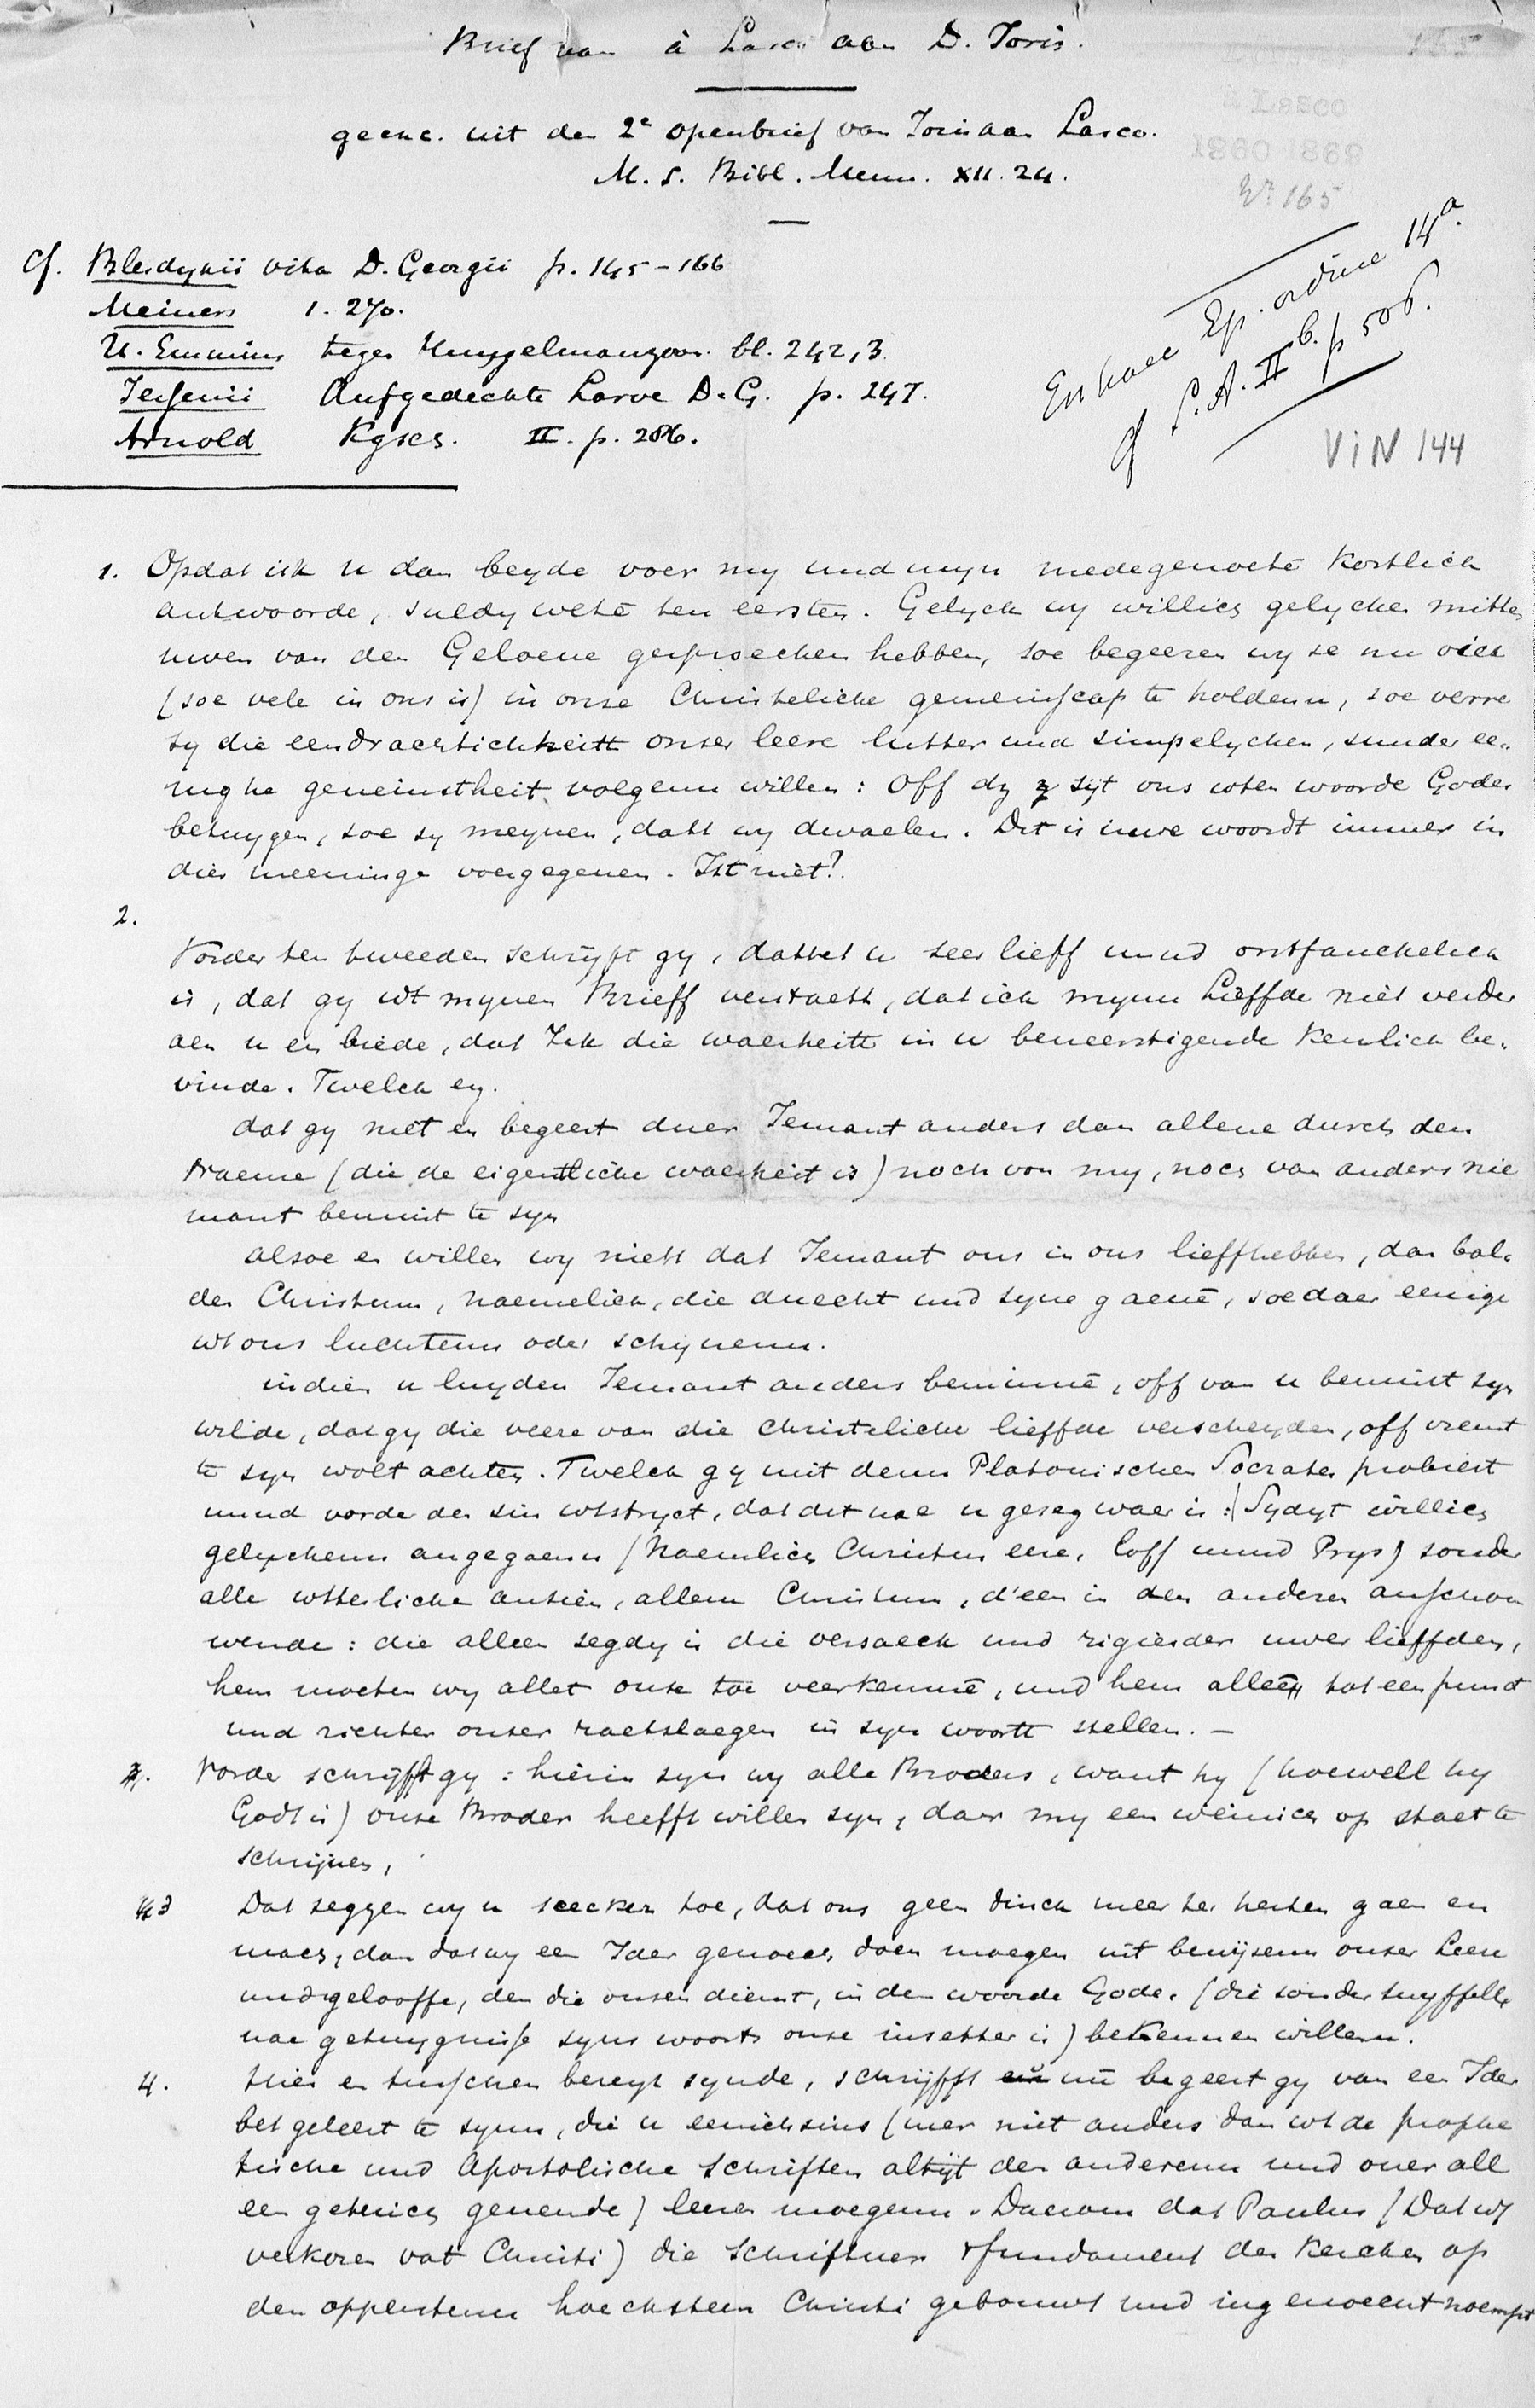 Brief van à Lasco aan D. Joris.
geexc. uit den 2e openbrief van Joris aan Lasco.
M. S. Bibl. Menn. XII. 24.
No 165
Cf. Blesdykii vita D. Georgii p. 145-166
Meiners 1. 270.
U. Emmius tegen Huygelmanzoon. bl. 242,3.
Jessenii Aufgedeckte Larve D. G. p. 247.
Arnold Kgsch. II. p. 286.
Est haec Ep. ordine 14a.
cf S. A. II b. p 506.
VIN 144
1. Opdat ick u dan beyde voer my und myn medegenoetē Kortlick
antwoorde, suldy wetē ten eersten. Gelyck wy willich gelycken mitten
uwen van den Geloeue gesproecken hebben, soe begeeren wy se nu oick
(soe vele in ons is) in onse Christelicke gemeinscap te holdenn, soe verre
sy die eendrachtichheitt onser leere lutter und simpelychen, sunder ee-
nighe geveinstheit volgenn willen: Off dy sijt ons wten woorde Godes
betuygen, soe sy meynen, datt wy dwaelen. Dit is uwe woordt immers in
dier meeninge voergegeuen. Ist niet?
2.
Vorder ten tweeden schrijft gy, dattet u seer lieff unnd ontfanckelick
is, dat gy wt mynen Brieff verstaett, dat ick mynn Lieffde niet verder
aen u en biede, dat Ick die waerheitt in u beneerstigende Kenlick be-
vinde. Twelck ey.
dat gy niet en begeert duer Jemant anders dan allene durch den
Naeme (die de eigentliche waerheit is) noch von my, noch van anders nie
mant bemint te syn
alsoe en willen wy niett dat Jemant ons in ons lieffhebben, dan bal-
den Christum, naemelick, die duecht und syne gauē, soe daer eenige
wt ons luchtenn oder schynenn.
indien u luyden Jemant anders beminnē, off van u bemint syn
wilde, dat gy die veere van die christeliche lieffde verscheyden, off vremt
te syn wolt achten. Twelck gy mit denn Platonischen Socrates probiert
unnd vorder den sin wtstryct, dat dit nae u geseg waer is: Sydyt willich
gelyckenn angegaenn (Naemlich Christus eere, loff unnd Prys) sonder
alle wtterlicke ansien, allein Christum, d'een in den anderen anschou
wende: die alleen segdy is die oersaeck und rigierder uwer lieffden,
hem moeten wy allet onse toe veerkennē, und hem alleen tot een punct
und richter onser raetslaegen in syn woortt stellen. —
Vorde schrijfft gy: hierin syn wy alle Broders, want hy (hoewell hy
Godt is) onse Broder heefft willen syn, daer my een weinich op staet te
schrijuen,
3 Dat seggen wy u seecker toe, dat ons geen dinck meer ter herten gaen en
mach, dan dat wy een Ider genoech doen moegen mit bewijsenn onser Leere
und gelooffe, den die onsen dienst, in den woorde Gode. (die sonder twyffell
nae getuygnisse syns woorts onse insetter is) bekennen willenn.
4. Hier en tusschen bereyt synde, schrijfft nū begeert gy van een Ider
bet geleert te synn, die u eenichsins (mer niet anders dan wt de prophe
tische und Apostolische schriften altijt den anderenn und ouer all
een getuich geuende) leeren moegenn. Daerom dat Paulus (Dat wt
verkoren vat Christi) die schriftuer t fundament der Kercken op
den oppersten hoecksteen Christi gebouwt und ingenoecht noempt